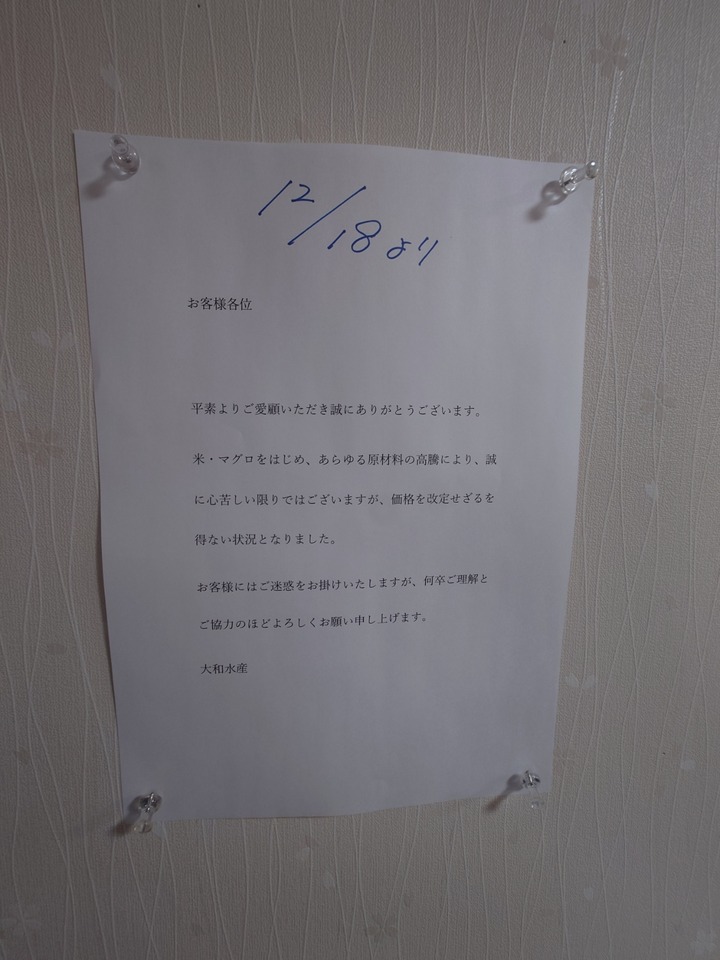 12/18より
お客様各位
平素よりご愛顧いただき誠にありがとうございます。
米・マグロをはじめ、あらゆる原材料の高騰により、誠
に心苦しい限りではございますが、価格を改定せざるを
得ない状況となりました。
お客様にはご迷惑をお掛けいたしますが、何卒ご理解と
ご協力のほどよろしくお願い申し上げます。
大和水産